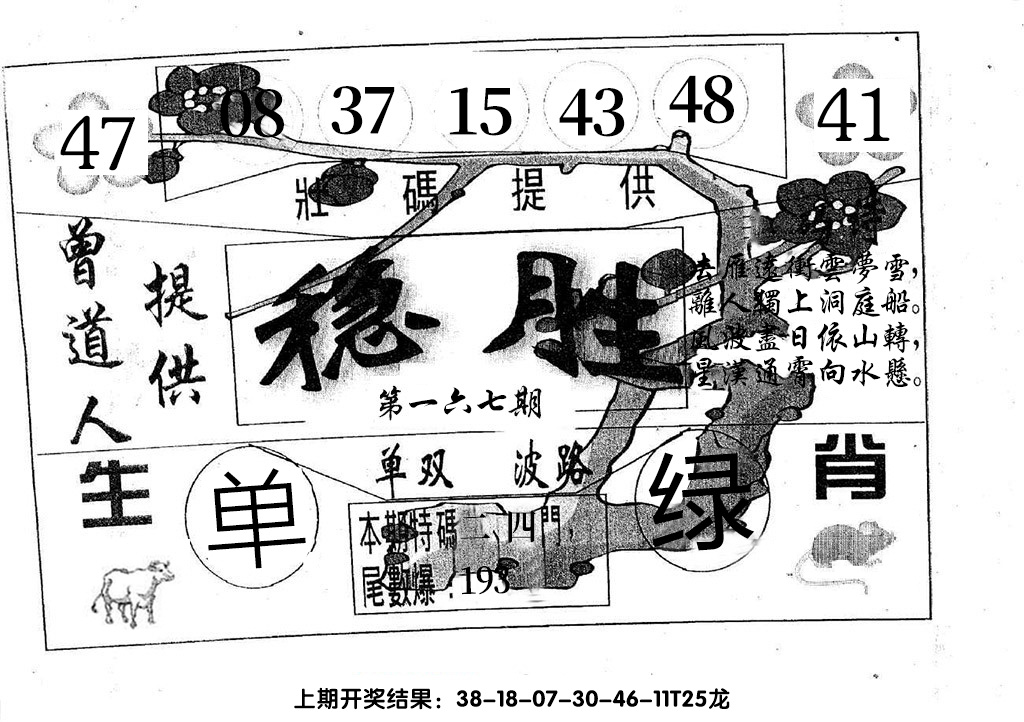 47 08 37 15 43 48 41
壯碼提供
曾道人
提供
稳胜
第一六七期
去雁遠衝雲夢雪，
離人獨上洞庭船。
風波盡日依山轉，
星漢通霄向水懸。
单双 波路
生肖
单
绿
本期特碼二、四門，
尾數爆：193
上期开奖结果：38-18-07-30-46-11T25龙